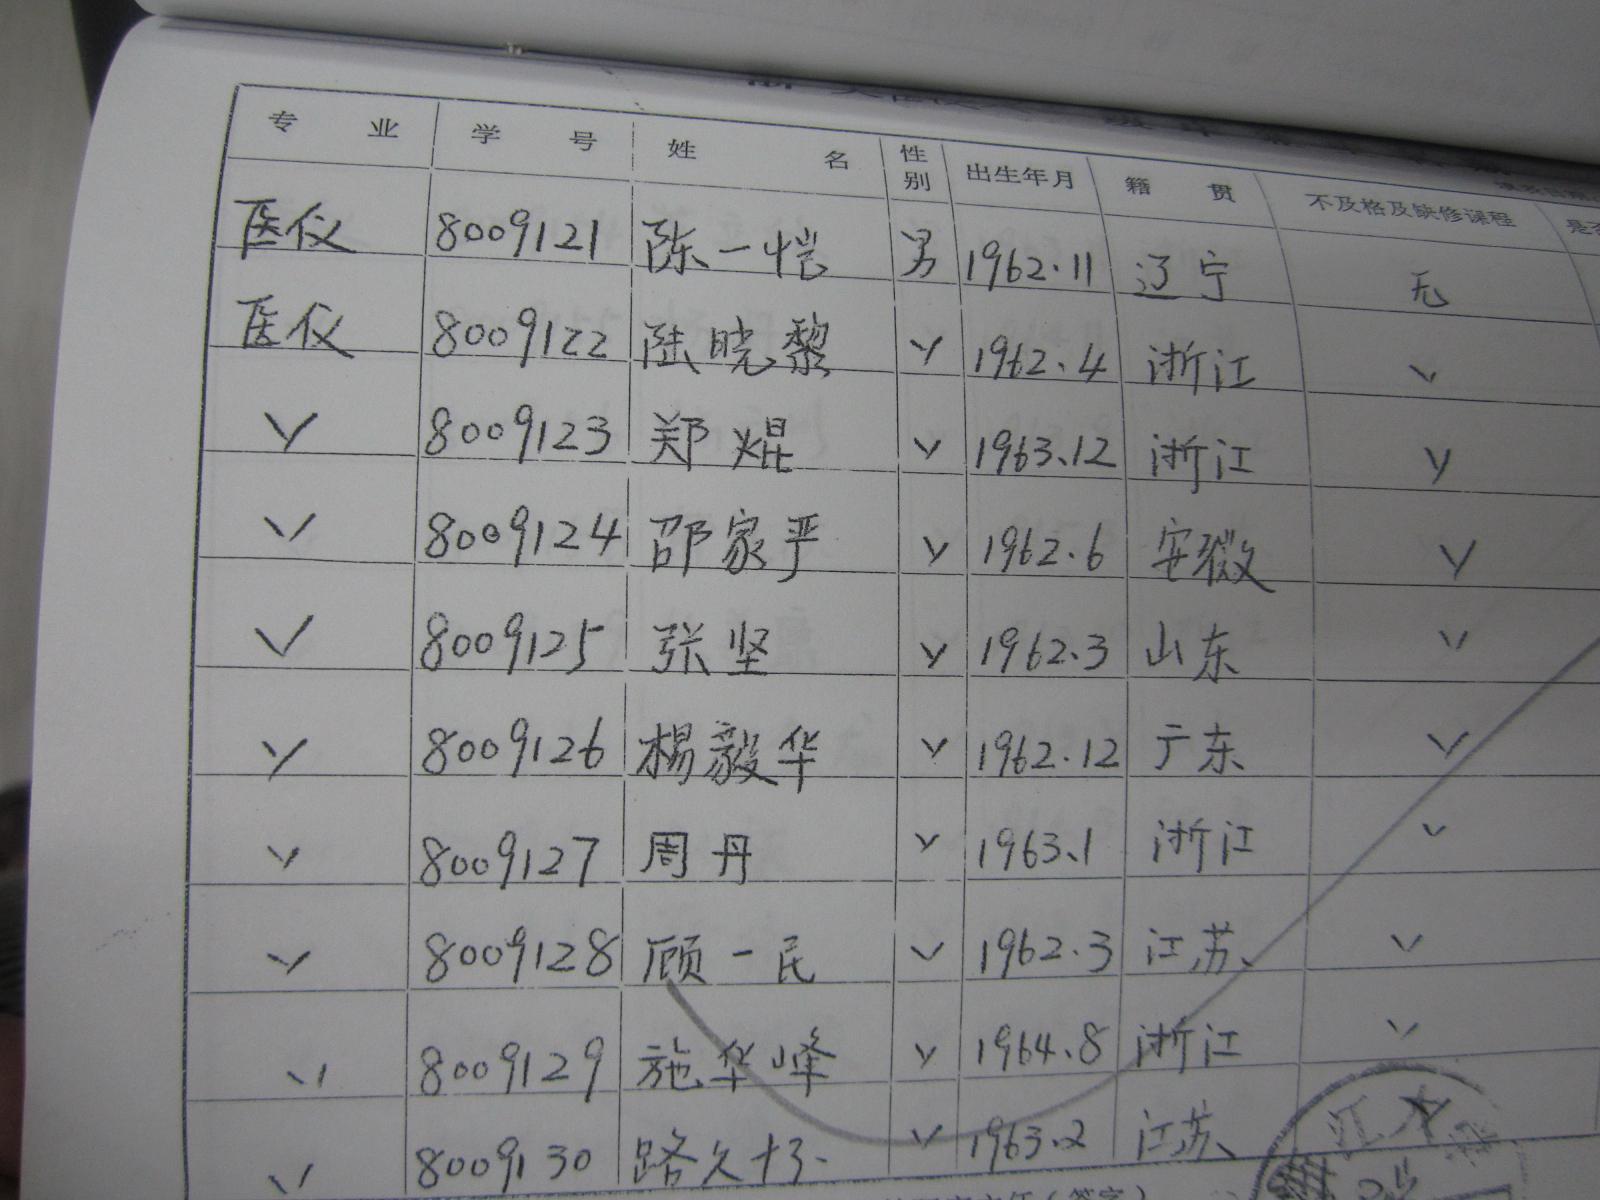 专业 学号 姓名 性别 出生年月 籍贯 不及格及缺修课程
医仪 8009121 陈一恺 男 1962.11 辽宁 无
医仪 8009122 陆晓黎 ✓ 1962.4 浙江 ✓
✓ 8009123 郑焜 ✓ 1963.12 浙江 ✓
✓ 8009124 邵家严 ✓ 1962.6 安徽 ✓
✓ 8009125 张坚 ✓ 1962.3 山东 ✓
✓ 8009126 杨毅华 ✓ 1962.12 广东 ✓
✓ 8009127 周丹 ✓ 1963.1 浙江 ✓
✓ 8009128 顾一民 ✓ 1962.3 江苏 ✓
✓ 8009129 施华峰 ✓ 1964.8 浙江 ✓
✓ 8009130 路久 ✓ 1963.2 江苏